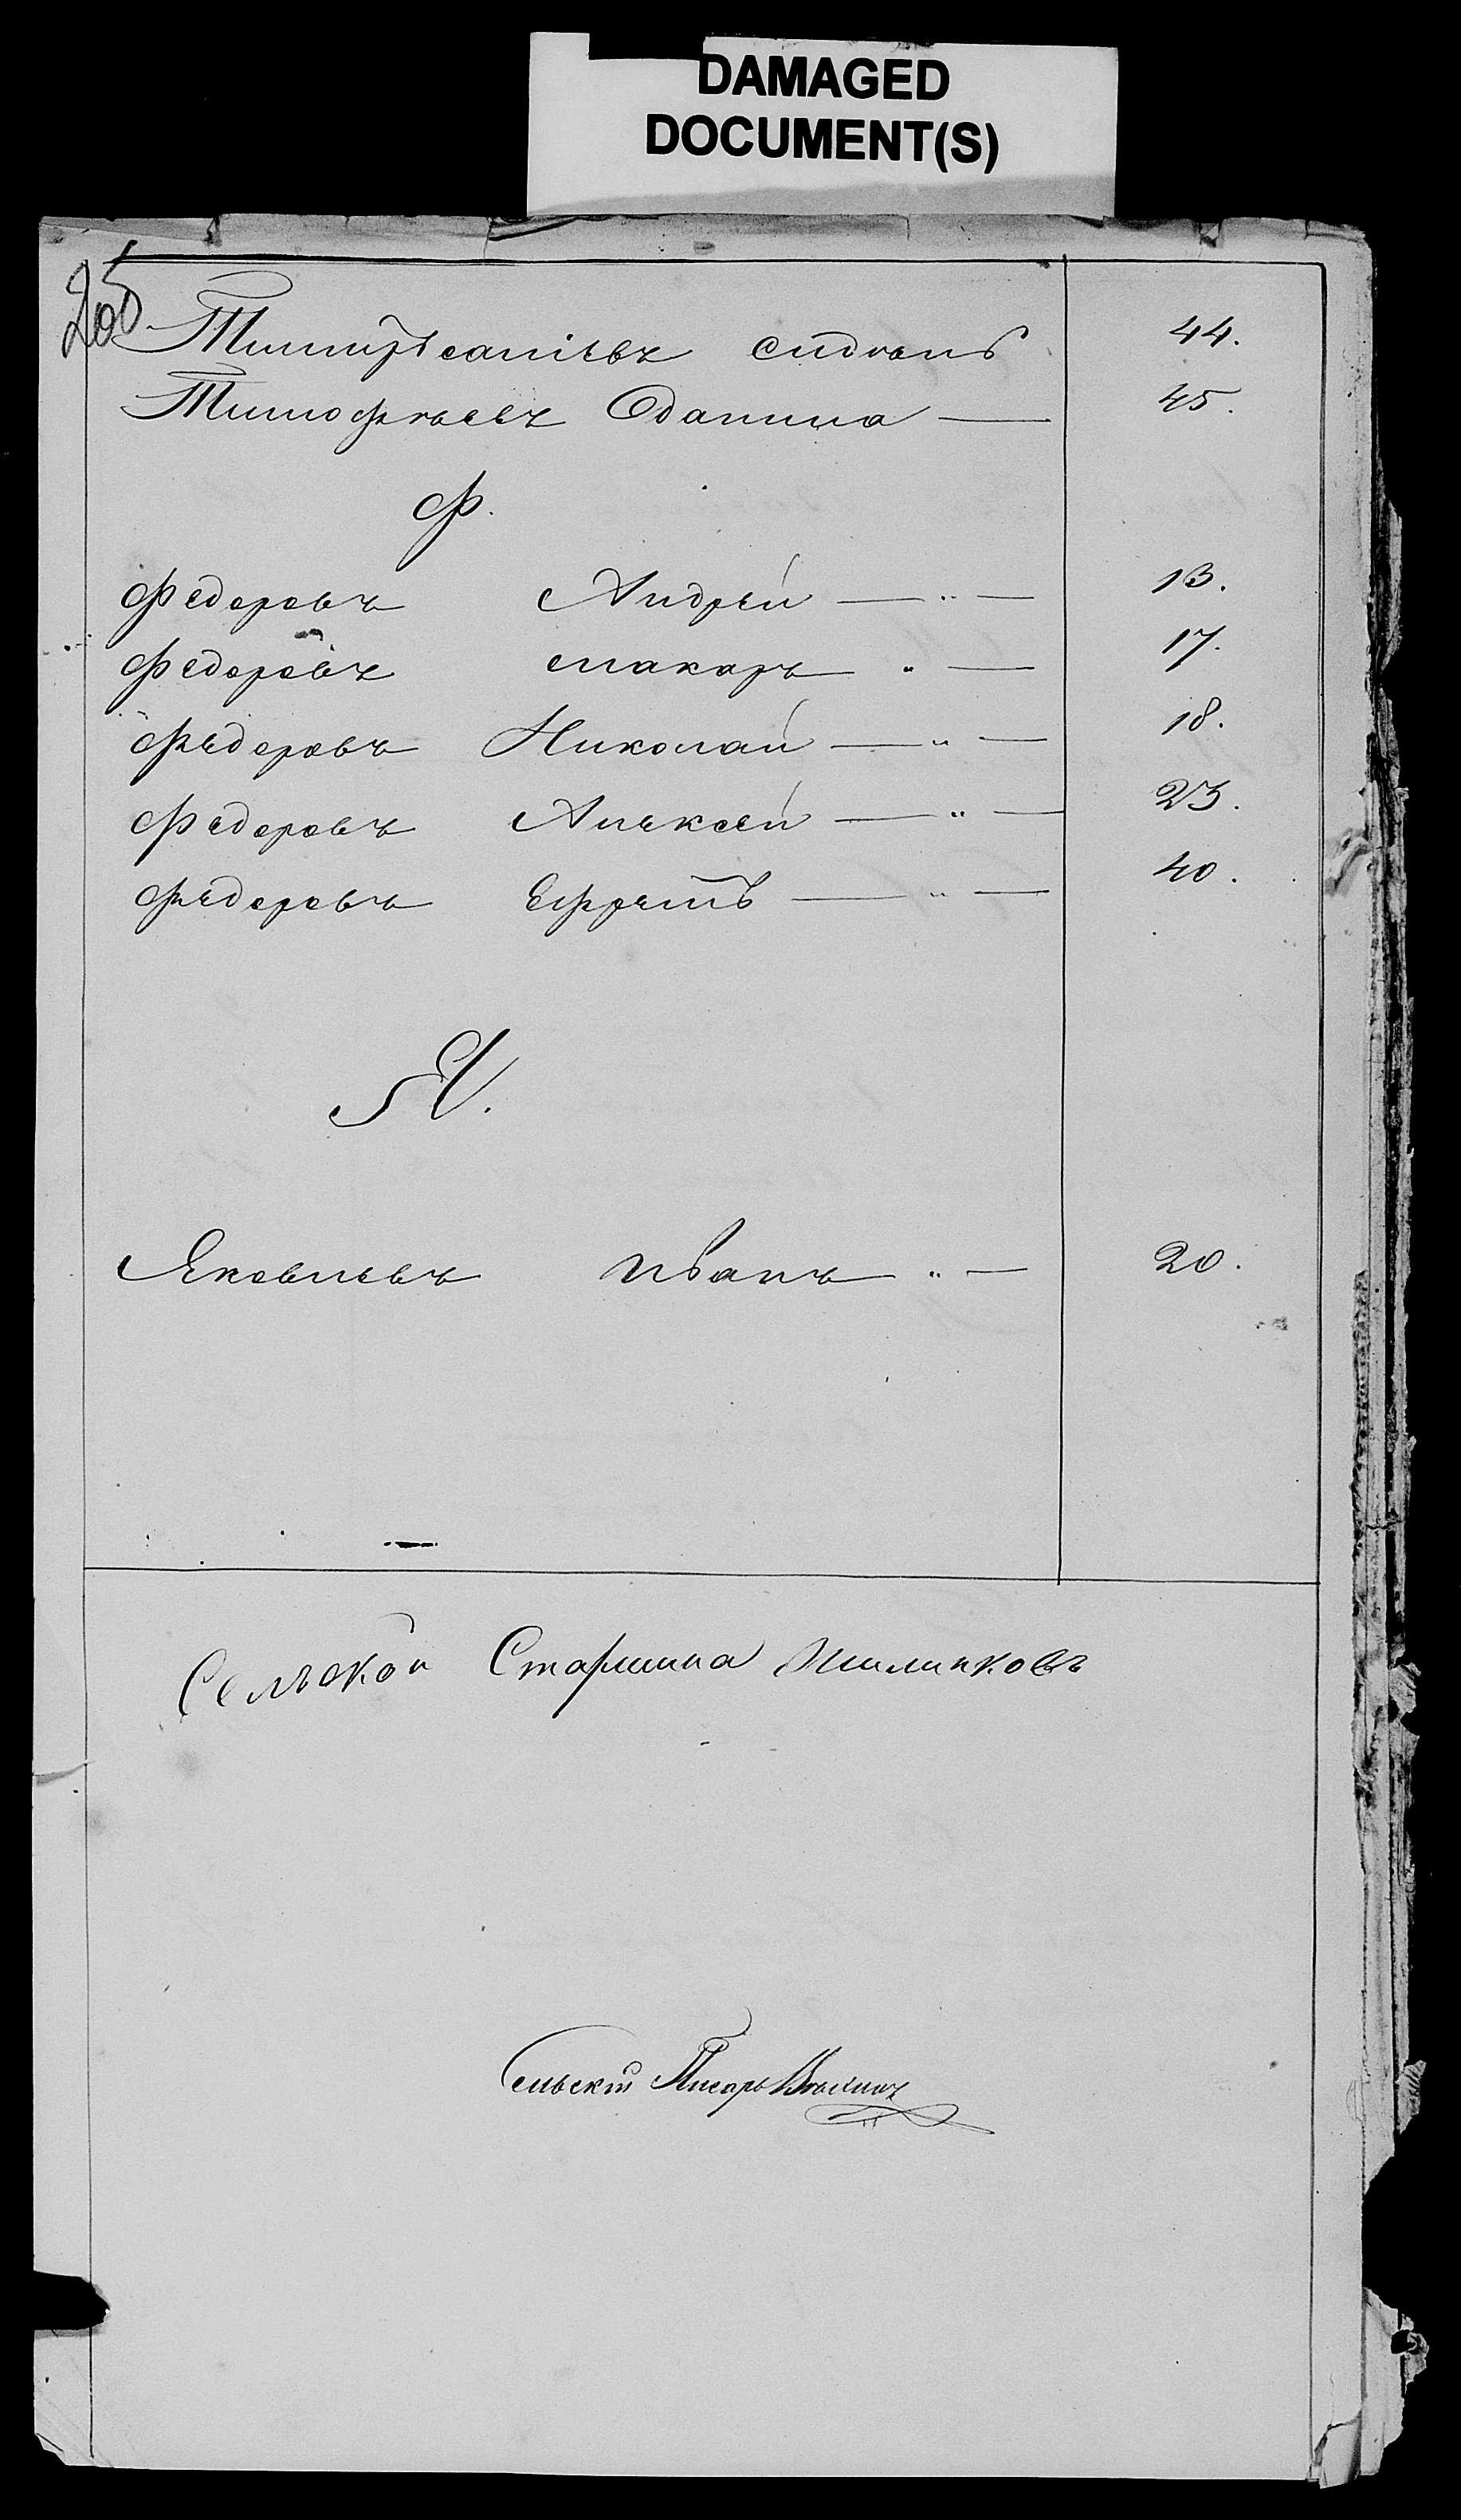 DAMAGED
DOCUMENT(S)
205
Сидоръ 44.
Тимофѣевъ Данила 45.
Ф.
Федоровъ Андрей 13.
Федоровъ Макаръ 17.
Федоровъ Николай 18.
Федоровъ Алексей 23.
Федоровъ Ефремъ 40.
Я.
Яковлевъ Иванъ 20.
Селской Старшина
Сельскiй Писарь